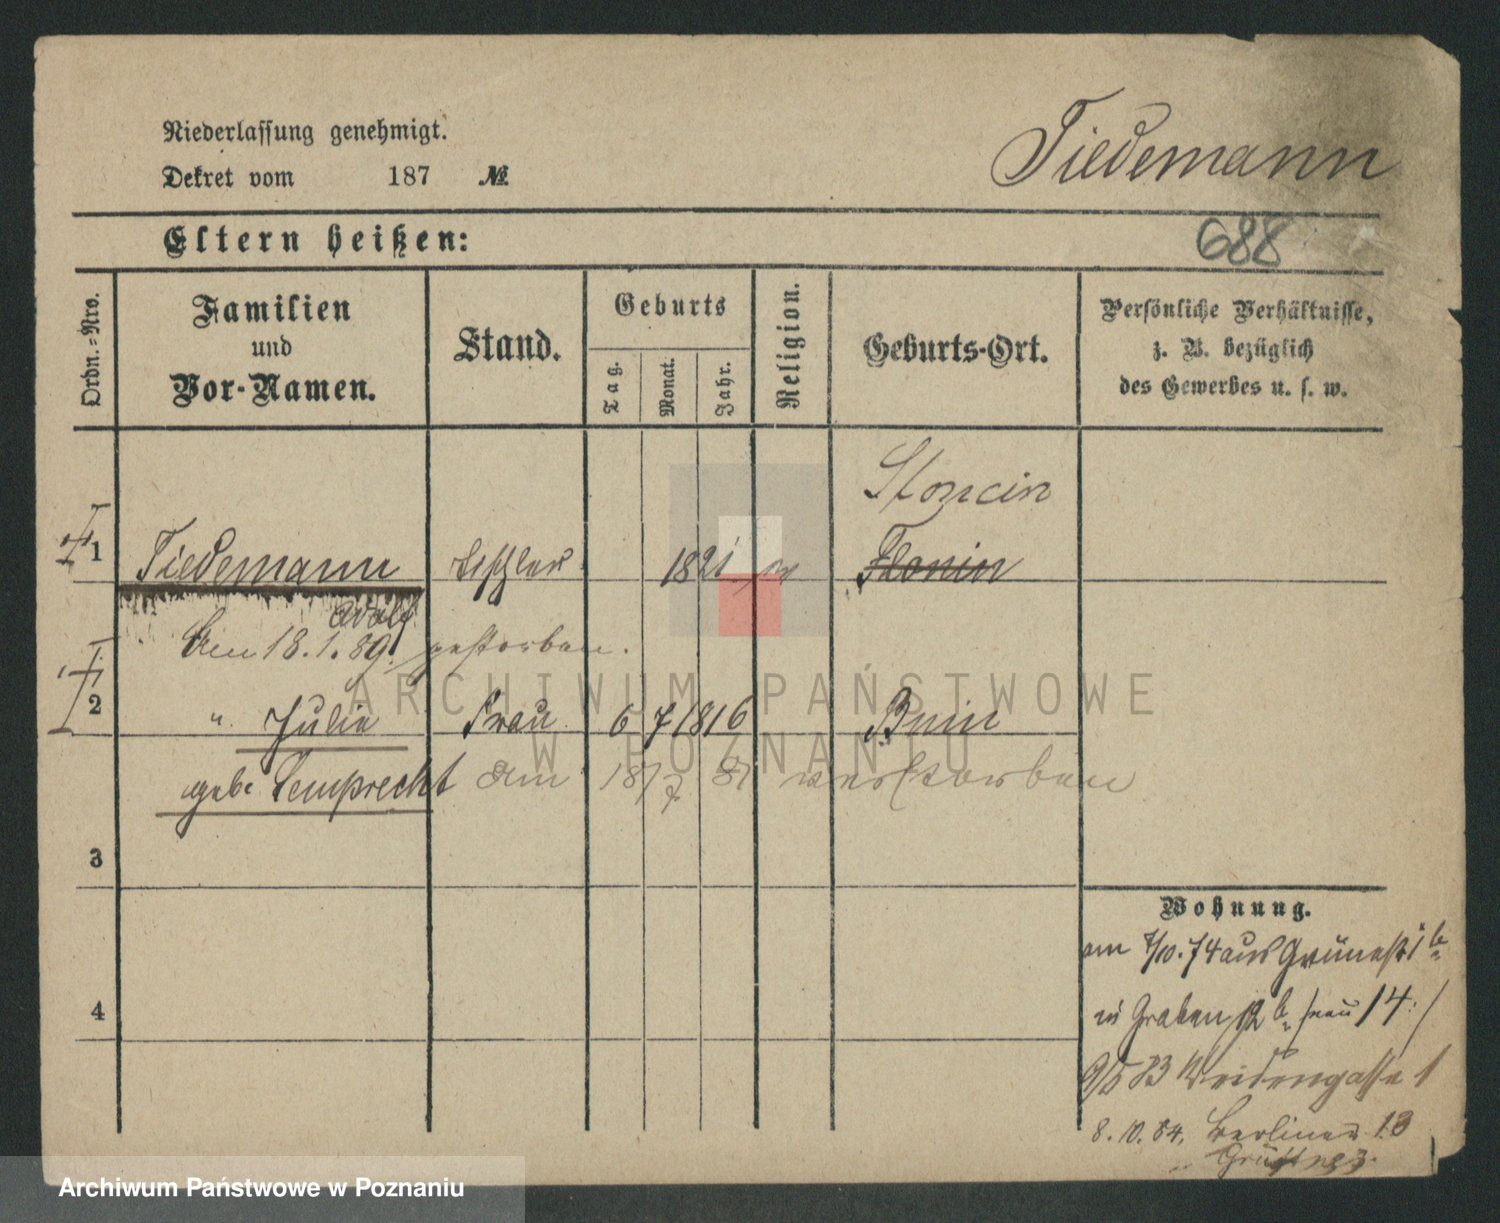 Tiedemann
Niederlassung genehmigt.
Dekret vom 187 №
Eltern heißen:
688
Ordn.-Nro.
Familien
und
Vor-Namen.
Stand.
Geburts
Tag.
Monat.
Jahr.
Religion.
Geburts-Ort.
Persönliche Verhältnisse,
z. B. bezüglich
des Gewerbes u. s. w.
1 Tiedemann Tischler 1821 Stoncin
Adolf
Am 18.1.89 gestorben.
2 " Julie Frau 6 7 1816 Bnin
geb. Lemprecht Am 18/7 81 verstorben
3
4
Wohnung.
am 7/10.74 aus Grünestr 1 b
in Graben 12 b /neu 14:/
9/5 83 Weidengasse 1
8.10.84. Berliner 13
ARCHIWUM PAŃSTWOWE
W POZNANIU
Archiwum Państwowe w Poznaniu